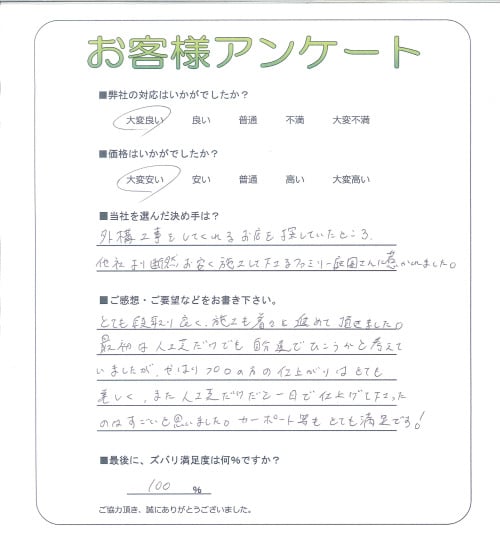 お客様アンケート
■弊社の対応はいかがでしたか？
大変良い 良い 普通 不満 大変不満
■価格はいかがでしたか？
大変安い 安い 普通 高い 大変高い
■当社を選んだ決め手は？
外構工事をしてくれるお店を探していたところ、
他社より断然お安く施工して下さるファミリー庭園さんに惹かれました。
■ご感想・ご要望などをお書き下さい。
とても段取り良く、施工も着々と進めて頂きました。
最初は人工芝だけでも自分達でひこうかと考えて
いましたが、やはりプロの方の仕上がりはとても
美しく、また人工芝だけだと一日で仕上げて下さった
のはすごいと思いました。カーポート等もとても満足です！
■最後に、ズバリ満足度は何％ですか？
100 %
ご協力頂き、誠にありがとうございました。